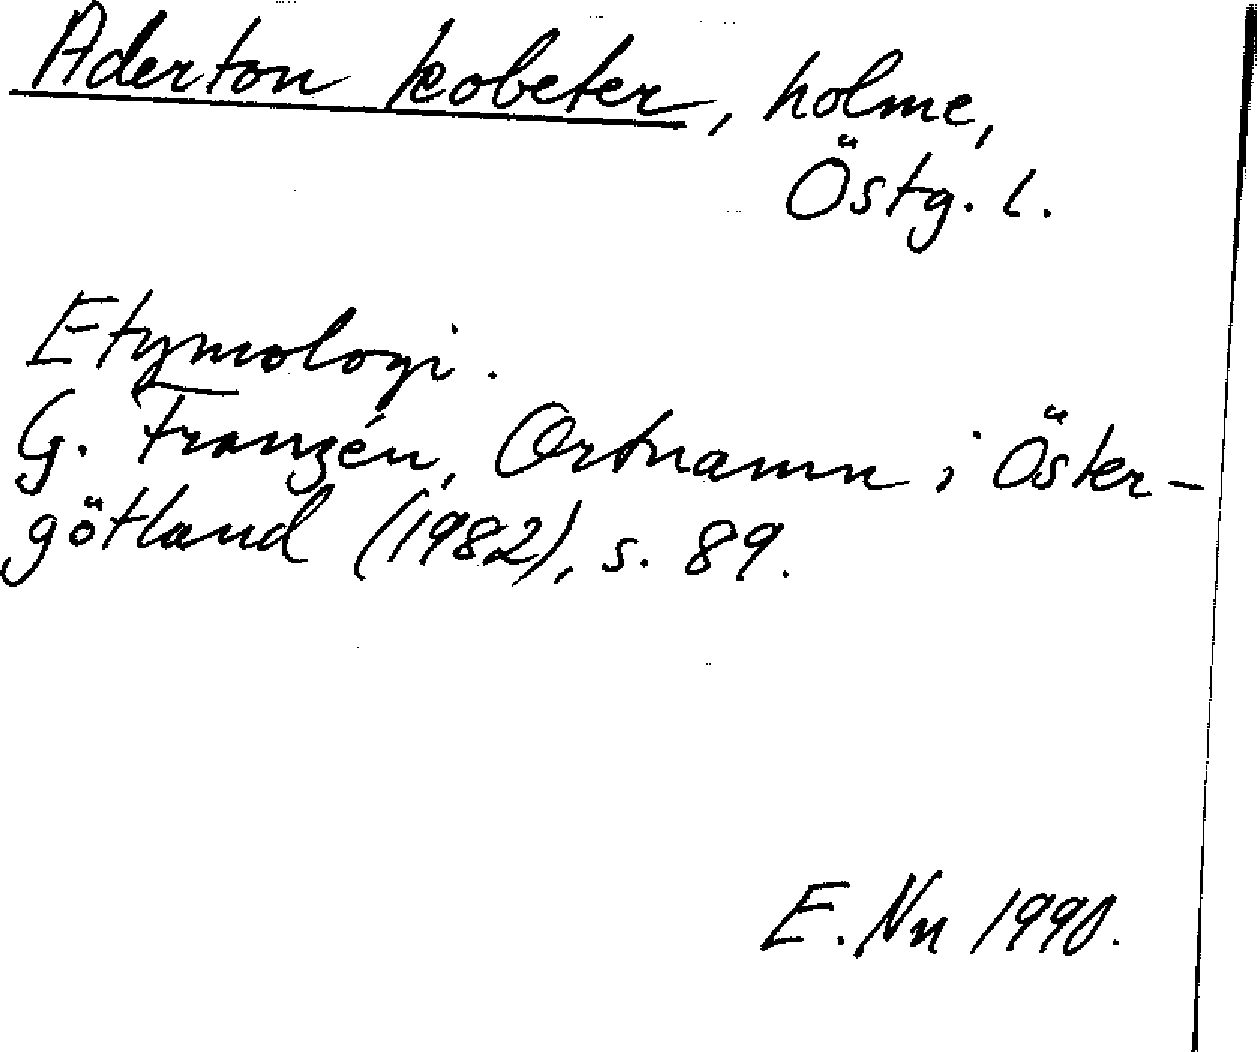 Aderton kobeter, holme,
Östg. l.
Etymologi.
G. Franzén, Ortnamn i Öster-
götland (1982), s. 89.
E. Nn 1990.